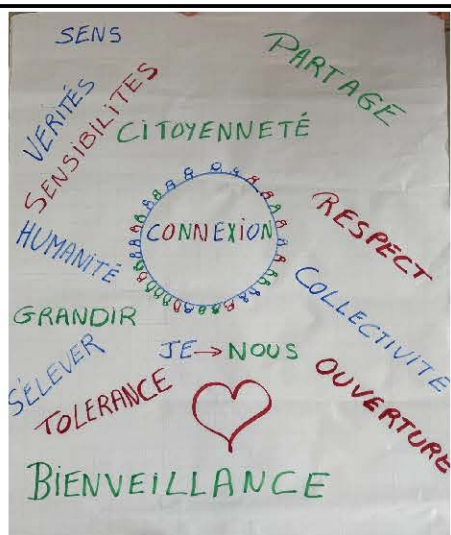 SENS
PARTAGE
VERITÉS
SENSIBILITES
CITOYENNETÉ
CONNEXION
RESPECT
HUMANITÉ
COLLECTIVITE
GRANDIR
JE → NOUS
S'ELEVER
TOLERANCE
OUVERTURE
BIENVEILLANCE